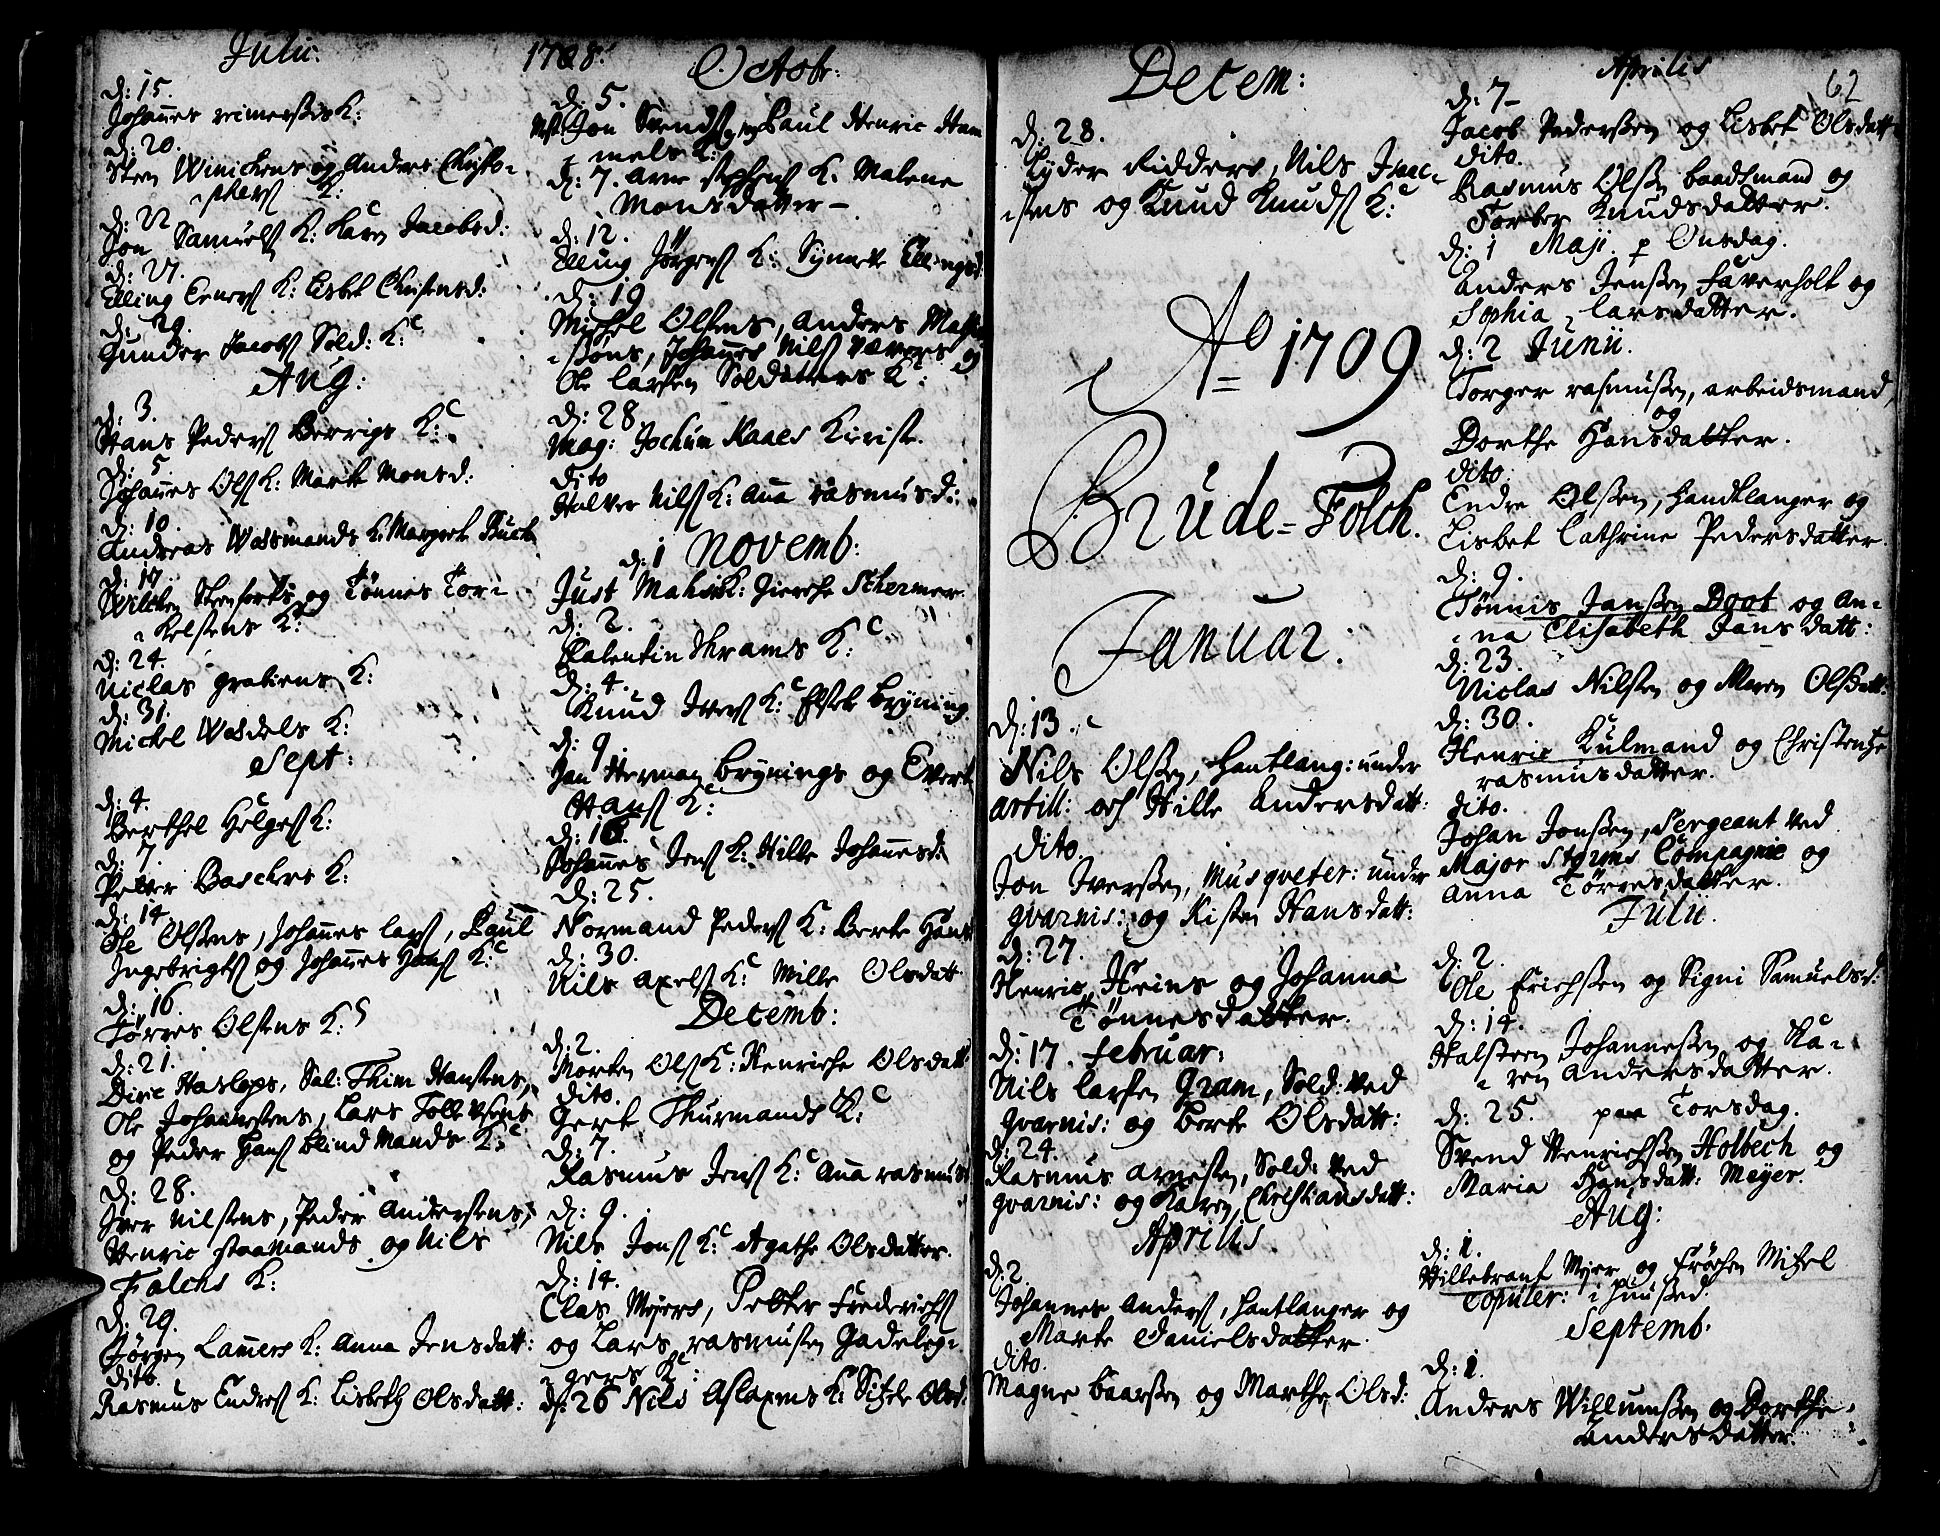 Julii.
1708.
d: 15.
Johannes reimersses K:
d: 20.
Sten Winickens og Anders Christo-
phers K:
d: 22
Jon Samuels K: Karen Jacobsd:
d: 27.
Elling Eeners K: Lisbet Christensd:
d: 29.
Gunder Jacobs Sold: K:
Aug:
d: 3.
Hans Peders Berrigs K:
d: 5.
Johannes Ols K: Marte Monsd:
d: 10.
Andreas Wessmands K: Margrete Buck
d: 17.
Wilcken Steenforts og Tönnes Tori-
kelsens K:
d: 24.
Niclas grabiens K:
d: 31.
Michel Wesdels K:
Sept:
d: 4.
Berthel Helges K:
d: 7.
Petter Backers K:
d: 14.
Ole Olssens, Johannes lars, Paul
Ingebrigts og Johannes Hans K:
d: 16.
Törres Olsens K:
d: 21.
Dirc Haslops, Sal: Thim Hansens,
Ole Johannessens, Lars Tollevsens
og Peder Hans blind Mands K:
d: 28.
Iver Nilsens, Peder Andersens,
Henric staamands og Nils
Falchs K:
d: 29.
Jörgen Lamers K: Anna Jensdatt:
dito.
Rasmus Endres K: Lisbeth Olsdatt:
Octobr:
d: 5.
Mst: Jon Svends, og Paul Henric Ham
mels K:
d: 7. Arne stephens K: Malene
Monsdatter-
d: 12.
Elling Jörgens K: Synnert Ellingsd:
d: 19
Michel Olsens, Anders Mathi
söns, Johannes Nils Vævers og
Ole larsen Soldatters K:
d: 28
Mag: Jochum Kaaes Kirist.
dito
Halver Nils K: Anna rasmusd:
d: 1 Novemb:
Just Mahs K: Gierche Schermer.
d: 2.
Valentin Thrams K:
d: 4.
Knud Ivers K: Elsch Bryning.
d: 9
Jan Herman Brynings og Evert
Hans K:
d: 16.
Johannes Jens K: Hille Johannesd:
d: 25.
Normand Peders K: Berte Hans
d: 30.
Nils Axels K: Mille Olsdatt.
Decemb:
d: 2.
Morten Ols K: Henriche Olsdatt
dito.
Gert Thurmands K:
d: 7.
Rasmus Jens K: Anna rasmus
d: 9.
Nils Jons K: Agathe Olsdatter.
d: 14.
Clas Meyers, Petter Frederichs
og Lars rasmusen Gadelegi
gers K:
d: 26 Nils Aslaxens K: Sitzele Olsd:
Decem:
d: 28.
Lyder Ridders, Nils Isac-
sens og Knud Knuds K:
Ao 1709
Brüde-Folch.
Januar:
d: 13.
Nils Olssen, Hantlang: under
artill: och Hille Andersdatt:
dito.
Jon Iverssen, Musqveter: under
gvarnis: og Kisten Hansdatt:
d: 27.
Henric Heins og Johanna
Tönnesdatter.
d: 17. Februar:
Nils larsen Gram, Sold: ved
gvarnis: og Berte Olsdatt:
d: 24.
Rasmus Arnesen, Sold: ved
gvarnis: og Karen Christiansdatt:
Aprilis
d: 2.
Johannes Anders, Hantlanger og
Marte Danielsdatter.
dito.
Magne baarssen og Marthe Olsd:
Aprilis
62
d: 7-
Jacob Pederssen og Lisbet Olsdatt
dito.
Rasmus Olssen baadsmand og
Torber Knudsdatter.
d: 1 Maji. p Onsdag.
Anders Jenssen Faverholt og
Sophia larsdatter.
d: 2 Junii.
Torger rasmussen, arbeidsmand,
og
Dorthe Hansdatter.
dito.
Endre Olssen, Handtlanger og
Lisbet Cathrine Pedersdatter.
d: 9.
Tönnis Janssen Boot og An-
na Elisabeth Jansdatt:
d: 23.
Niclas Nilsen og Maren Olsdatt:
d: 30.
Henric Kulmand og Christentze
rasmusdatter.
dito.
Johan Jonssen, Sergeant ved
Major Storms Compagnie og
Anna Törresdatter.
Julii.
d: 2.
Ole Erichssen og Signi Samuelsd:
d: 14.
Halsteen Johannessen og Ka-
ren Andersdatter.
d: 25. paa Torsdag.
Svend Henrichssen Holbech og
Maria Hansdatt: Meyer.
Aug:
d: 1.
Hillebrant Meyer og Fröchen Mitzel
Topüler: i Huussed.
Septemb:
d: 1.
Anders Willumssen og Dorthe
Andersdatter.